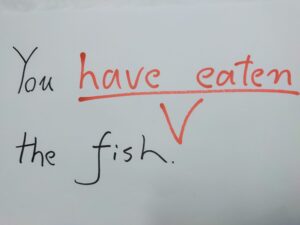 You have eaten
V
the fish.